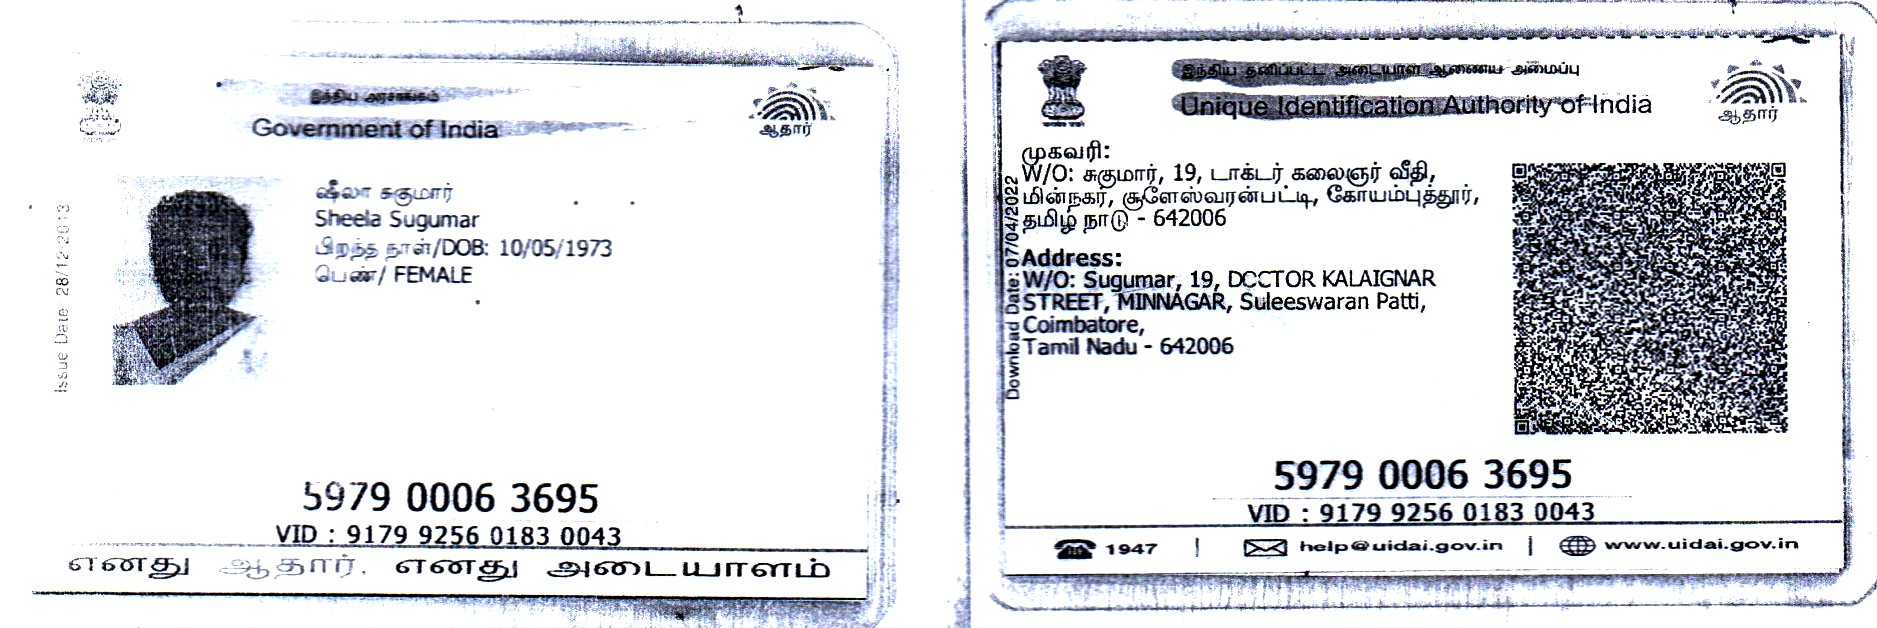 இந்திய அரசாங்கம்
Government of India
ஆதார்
ஷீலா சுகுமார்
Sheela Sugumar
பிறந்த நாள்/DOB: 10/05/1973
பெண்/ FEMALE
Issue Date: 28/12/2013
5979 0006 3695
VID : 9179 9256 0183 0043
எனது ஆதார், எனது அடையாளம்
இந்திய தனிப்பட்ட அடையாள ஆணைய அமைப்பு
Unique Identification Authority of India
ஆதார்
முகவரி:
W/O: சுகுமார், 19, டாக்டர் கலைஞர் வீதி,
மின்நகர், சூளேஸ்வரன்பட்டி, கோயம்புத்தூர்,
தமிழ் நாடு - 642006
Address:
W/O: Sugumar, 19, DOCTOR KALAIGNAR
STREET, MINNAGAR, Suleeswaran Patti,
Coimbatore,
Tamil Nadu - 642006
Download Date: 07/04/2022
5979 0006 3695
VID : 9179 9256 0183 0043
1947 | help@uidai.gov.in | www.uidai.gov.in